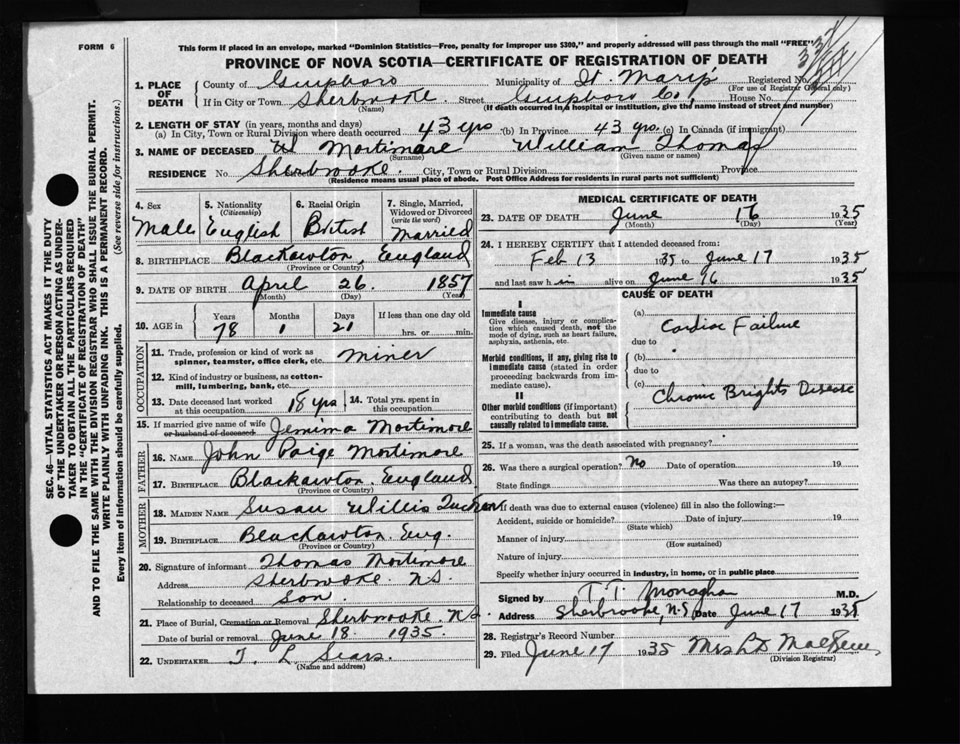 FORM 6
This form if placed in an envelope, marked "Dominion Statistics—Free, penalty for improper use $300," and properly addressed will pass through the mail "FREE"
PROVINCE OF NOVA SCOTIA—CERTIFICATE OF REGISTRATION OF DEATH
SEC. 46—VITAL STATISTICS ACT MAKES IT THE DUTY
OF THE UNDERTAKER OR PERSON ACTING AS UNDER-
TAKER TO OBTAIN ALL THE PARTICULARS REQUIRED
IN THE "CERTIFICATE OF REGISTRATION OF DEATH"
AND TO FILE THE SAME WITH THE DIVISION REGISTRAR WHO SHALL ISSUE THE BURIAL PERMIT.
WRITE PLAINLY WITH UNFADING INK. THIS IS A PERMANENT RECORD.
Every item of information should be carefully supplied. (See reverse side for instructions.)
1. PLACE OF DEATH
County of Guysboro Municipality of St. Mary's Registered No.
(For use of Registrar General only)
If in City or Town Sherbrooke. Street Guysboro Co, House No.
(Name) (If death occurred in a hospital or institution, give the name instead of street and number)
2. LENGTH OF STAY (in years, months and days)
(a) In City, Town or Rural Division where death occurred 43 yrs (b) In Province 43 yrs. (c) In Canada (if immigrant)
3. NAME OF DECEASED Mortimore William Thomas
(Surname) (Given name or names)
RESIDENCE No Sherbrooke. City, Town or Rural Division Province
(Residence means usual place of abode. Post Office Address for residents in rural parts not sufficient)
4. Sex Male
5. Nationality (Citizenship) English
6. Racial Origin British
7. Single, Married, Widowed or Divorced (write the word) Married
8. BIRTHPLACE Blackawton, England
(Province or Country)
9. DATE OF BIRTH April 26. 1857
(Month) (Day) (Year)
10. AGE in Years Months Days If less than one day old
78 1 21 hrs. or min.
OCCUPATION
11. Trade, profession or kind of work as spinner, teamster, office clerk, etc. miner
12. Kind of industry or business, as cotton-mill, lumbering, bank, etc.
13. Date deceased last worked at this occupation 18 yrs 14. Total yrs. spent in this occupation
15. If married give name of wife or husband of deceased Jemima Mortimore
FATHER
16. NAME John Paige Mortimore
17. BIRTHPLACE Blackawton. England
(Province or Country)
MOTHER
18. MAIDEN NAME Susan Willis Tucker
19. BIRTHPLACE Blackawton. Eng.
(Province or Country)
20. Signature of informant Thomas Mortimore
Address Sherbrooke. N.S.
Relationship to deceased Son.
21. Place of Burial, Cremation or Removal Sherbrooke. N.S.
Date of burial or removal June 18. 1935.
22. UNDERTAKER T. L. Sears.
(Name and address)
MEDICAL CERTIFICATE OF DEATH
23. DATE OF DEATH June 16 1935
(Month) (Day) (Year)
24. I HEREBY CERTIFY that I attended deceased from:
Feb 13 1935 to June 17 1935
and last saw h im alive on June 16 1935
CAUSE OF DEATH
I
Immediate cause
Give disease, injury or complication which caused death, not the mode of dying, such as heart failure, asphyxia, asthenia, etc.
Morbid conditions, if any, giving rise to immediate cause (stated in order proceeding backwards from immediate cause).
II
Other morbid conditions (if important) contributing to death but not causally related to immediate cause.
(a) Cardiac Failure
due to
(b)
due to
(c) Chronic Brights Disease
25. If a woman, was the death associated with pregnancy?
26. Was there a surgical operation? No Date of operation 19
State findings Was there an autopsy?
27. If death was due to external causes (violence) fill in also the following:—
Accident, suicide or homicide? Date of injury 19
(State which)
Manner of injury
(How sustained)
Nature of injury
Specify whether injury occurred in industry, in home, or in public place
Signed by T. T. Monaghan M.D.
Address Sherbrooke, N.S. Date June 17 1935
28. Registrar's Record Number
29. Filed June 17 1935
(Division Registrar)